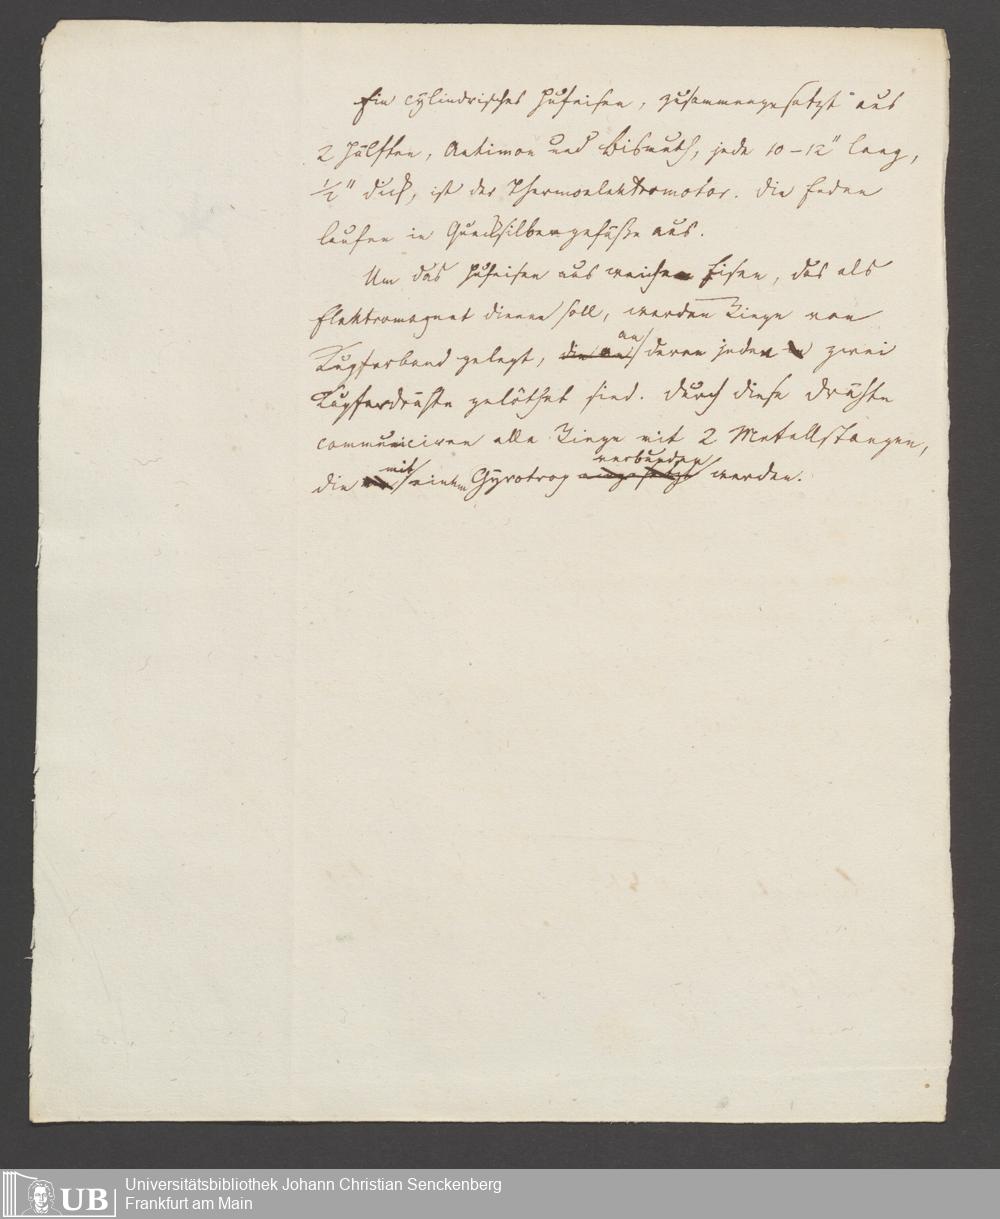 Ein cylindrisches Hufeisen, zusammengesetzt aus
2 Hälften, Antimon und Bismuth, jede 10–12" lang,
½" dick, ist der Thermoelektromotor. Die Enden
laufen in Quecksilbergefäße aus.
Um das Hufeisen aus weichem Eisen, das als
Elektromagnet dienen soll, werden Ringe von
Kupferband gelegt, an deren jeden zwei
Kupferdrähte gelöthet sind. Durch diese Drähte
communiciren alle Ringe mit 2 Metallstangen,
die mit einem Gyrotrop verbunden werden.
UB
Universitätsbibliothek Johann Christian Senckenberg
Frankfurt am Main